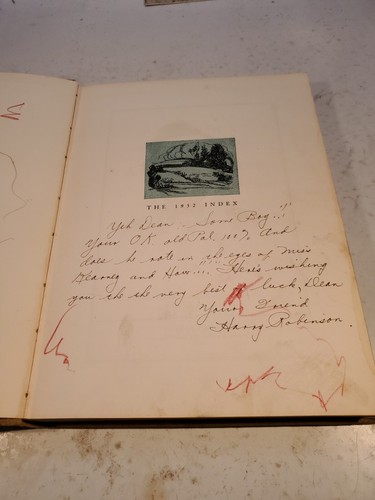 THE 1932 INDEX
Yeh Dean - Some Boy..!!
Your O.K. old Pal, 100% And
does he rate in the eyes of Miss
Kearney and How..." Here's wishing
you the the very best of luck, Dean
Your Friend
Harry Robenson.